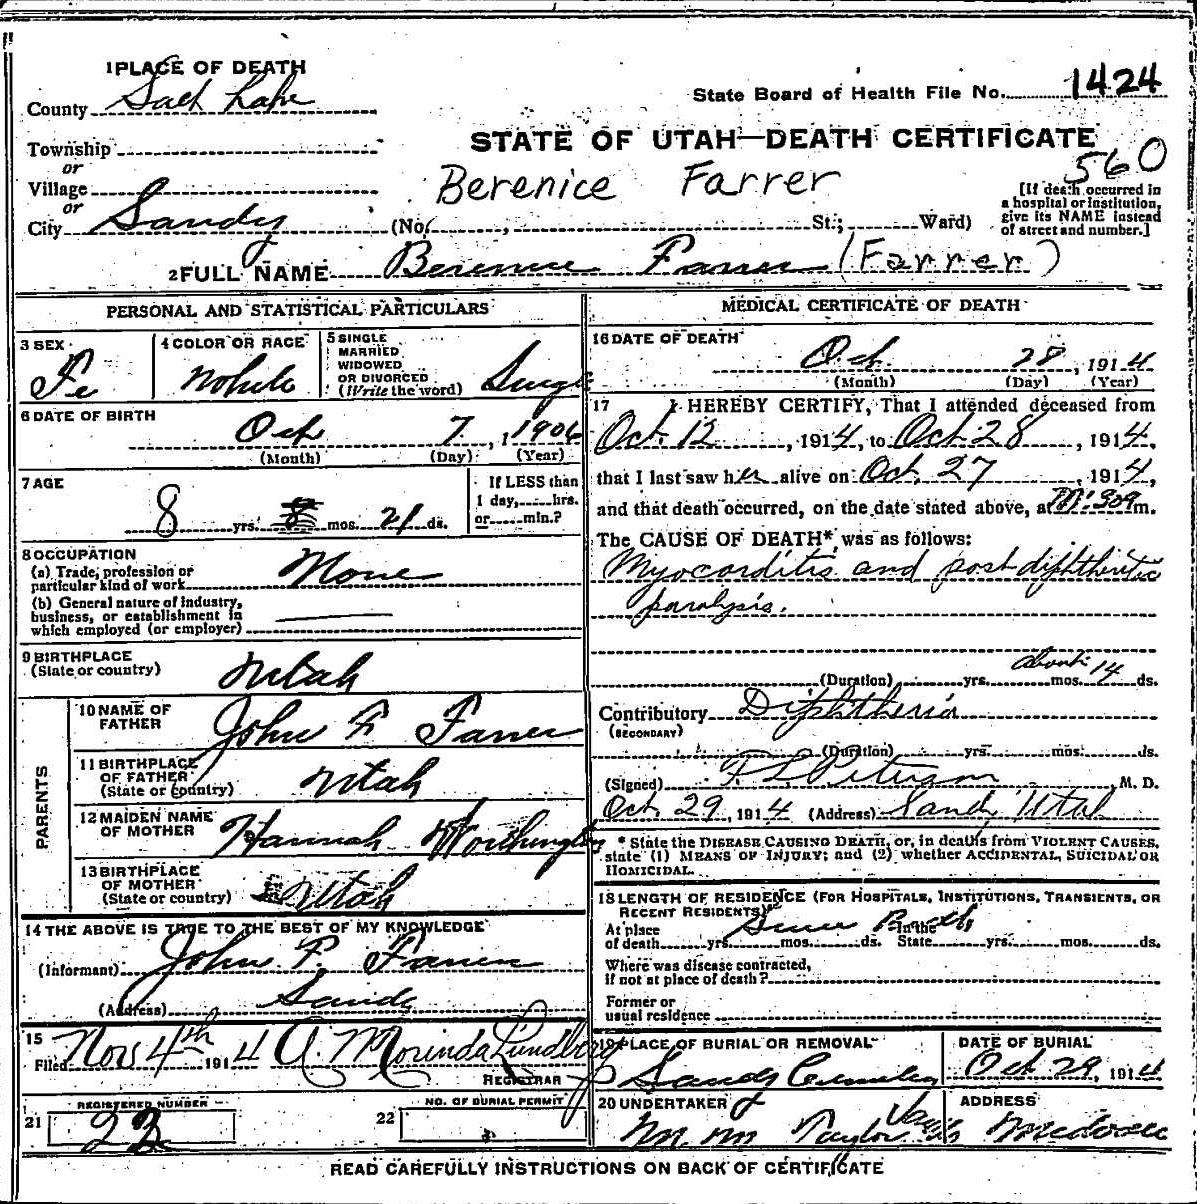 1 PLACE OF DEATH
County Salt Lake
State Board of Health File No. 1424
Township
or
Village
or
City Sandy
STATE OF UTAH—DEATH CERTIFICATE
560
Berenice Farrer
(No. , St.; Ward)
[If death occurred in
a hospital or institution,
give its NAME instead
of street and number.]
2 FULL NAME Berenice Farrer (Farrer)
PERSONAL AND STATISTICAL PARTICULARS
3 SEX Fe
4 COLOR OR RACE White
5 SINGLE
MARRIED
WIDOWED
OR DIVORCED
(Write the word) Single
6 DATE OF BIRTH
Oct 7, 1906
(Month) (Day) (Year)
7 AGE
8 yrs. mos. 21 ds.
If LESS than
1 day, hrs.
or min.?
8 OCCUPATION
(a) Trade, profession or
particular kind of work None
(b) General nature of industry,
business, or establishment in
which employed (or employer)
9 BIRTHPLACE
(State or country) Utah
PARENTS
10 NAME OF
FATHER John F Farrer
11 BIRTHPLACE
OF FATHER
(State or country) Utah
12 MAIDEN NAME
OF MOTHER Hannah Worthington
13 BIRTHPLACE
OF MOTHER
(State or country) Utah
14 THE ABOVE IS TRUE TO THE BEST OF MY KNOWLEDGE
(Informant) John F. Farrer
(Address) Sandy
15
Filed Nov 4th 1914 A. Morinda Lundberg
REGISTRAR
21 REGISTERED NUMBER
22
22 NO. OF BURIAL PERMIT
MEDICAL CERTIFICATE OF DEATH
16 DATE OF DEATH
Oct. 28, 1914
(Month) (Day) (Year)
17 I HEREBY CERTIFY, That I attended deceased from
Oct. 12, 1914, to Oct 28, 1914,
that I last saw her alive on Oct. 27, 1914,
and that death occurred, on the date stated above, at m.
The CAUSE OF DEATH* was as follows:
Myocarditis and post diphtheritic
paralysis.
(Duration) yrs. mos. about 14 ds.
Contributory Diphtheria
(SECONDARY)
(Duration) yrs. mos. ds.
(Signed) F. L. Peterson, M. D.
Oct. 29, 1914 (Address) Sandy Utah
* State the DISEASE CAUSING DEATH, or, in deaths from VIOLENT CAUSES,
state (1) MEANS OF INJURY; and (2) whether ACCIDENTAL, SUICIDAL OR
HOMICIDAL.
18 LENGTH OF RESIDENCE (FOR HOSPITALS, INSTITUTIONS, TRANSIENTS, OR
RECENT RESIDENTS)
At place In the
of death yrs. mos. ds. State yrs. mos. ds.
Since Birth
Where was disease contracted,
if not at place of death?
Former or
usual residence
19 PLACE OF BURIAL OR REMOVAL
Sandy Cemetery
DATE OF BURIAL
Oct 29, 1914
20 UNDERTAKER
Taylor
ADDRESS
READ CAREFULLY INSTRUCTIONS ON BACK OF CERTIFICATE